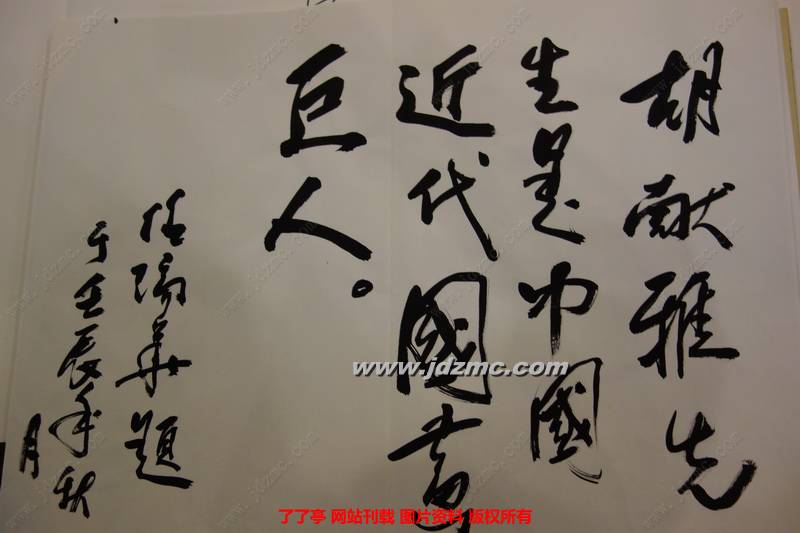 胡献雅先
生是中國
近代國畫
巨人。
任瑞華題
于壬辰年秋
月
www.jdzmc.com
了了亭 网站刊载 图片资料 版权所有